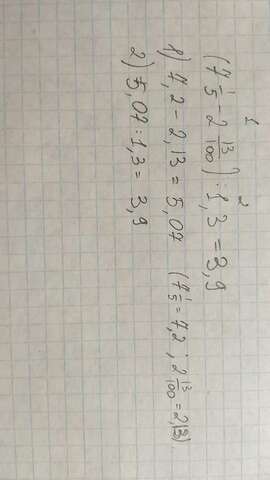 (7 1/5 - 2 13/100) : 1,3 = 3,9
1) 7,2 - 2,13 = 5,07 (7 1/5 = 7,2 ; 2 13/100 = 2,13)
2) 5,07 : 1,3 = 3,9